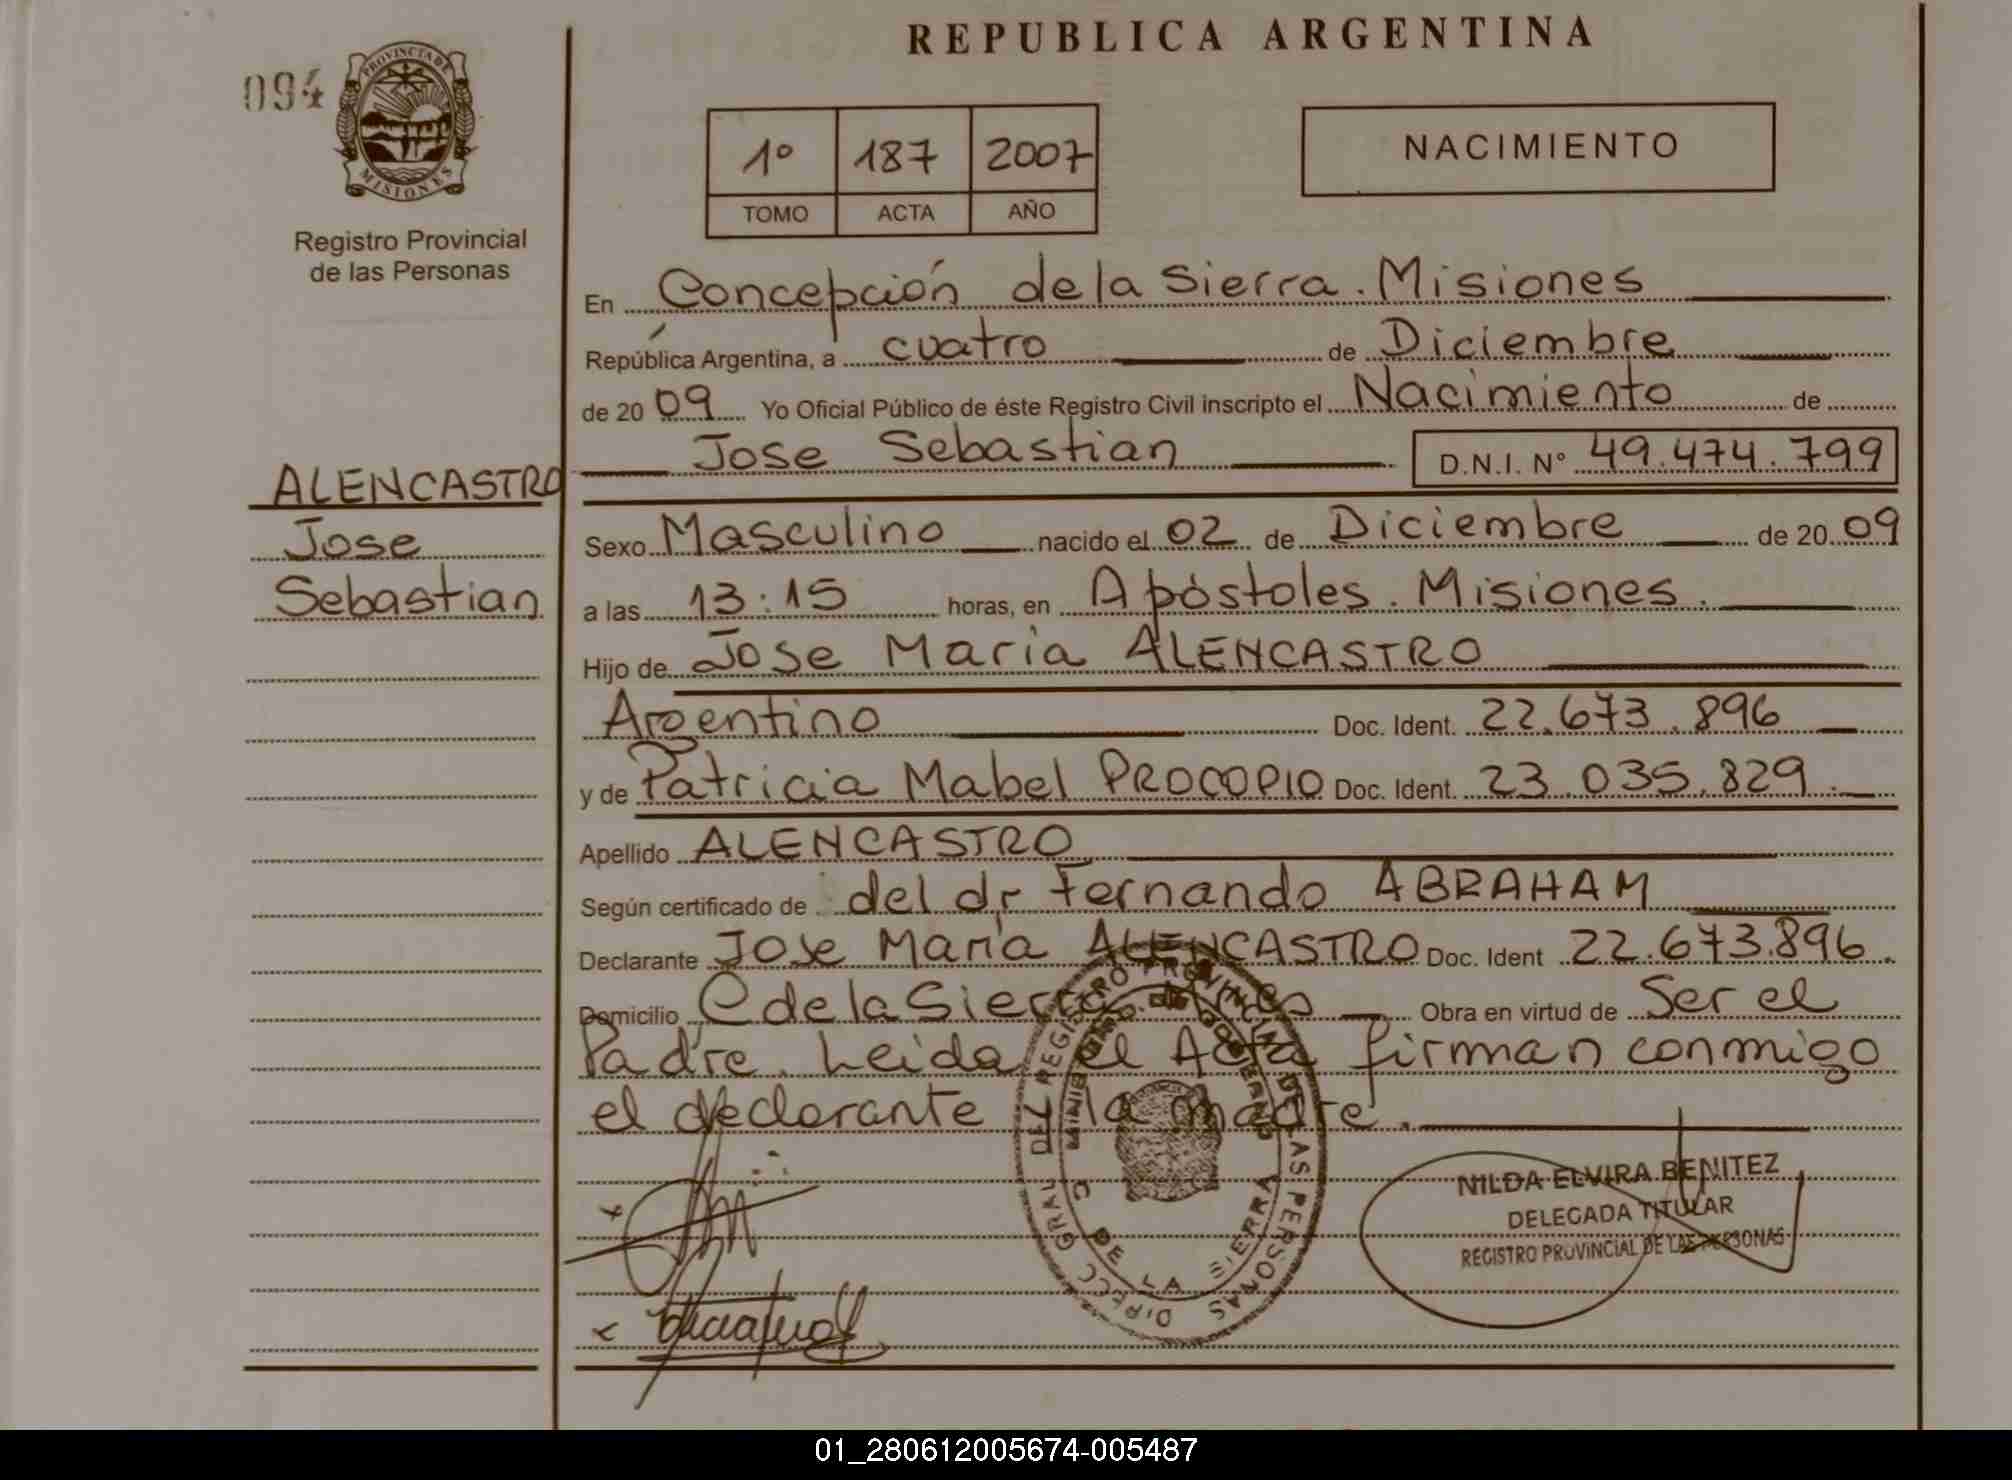 REPUBLICA ARGENTINA
094
PROVINCIA DE
MISIONES
Registro Provincial
de las Personas
1º 187 2007
TOMO ACTA AÑO
NACIMIENTO
En Concepción de la Sierra. Misiones
República Argentina, a cuatro de Diciembre
de 2009 Yo Oficial Público de éste Registro Civil inscripto el Nacimiento de
Jose Sebastian D.N.I. N° 49.474.799
ALENCASTRO
Jose
Sebastian
Sexo Masculino nacido el 02 de Diciembre de 2009
a las 13:15 horas, en Apóstoles. Misiones.
Hijo de Jose Maria ALENCASTRO
Argentino Doc. Ident. 22.673.896
y de Patricia Mabel PROCOPIO Doc. Ident. 23.035.829.
Apellido ALENCASTRO
Según certificado de del dr Fernando ABRAHAM
Declarante Jose Maria ALENCASTRO Doc. Ident 22.673.896.
Domicilio C de la Sierra Mnes Obra en virtud de Ser el
Padre. Leida el Acta firman conmigo
el declarante y la madre.
DIRECC GRAL DEL REGISTRO PROVINCIAL DE LAS PERSONAS
C DE LA SIERRA
NILDA ELVIRA BENITEZ
DELEGADA TITULAR
REGISTRO PROVINCIAL DE LAS PERSONAS
01_280612005674-005487